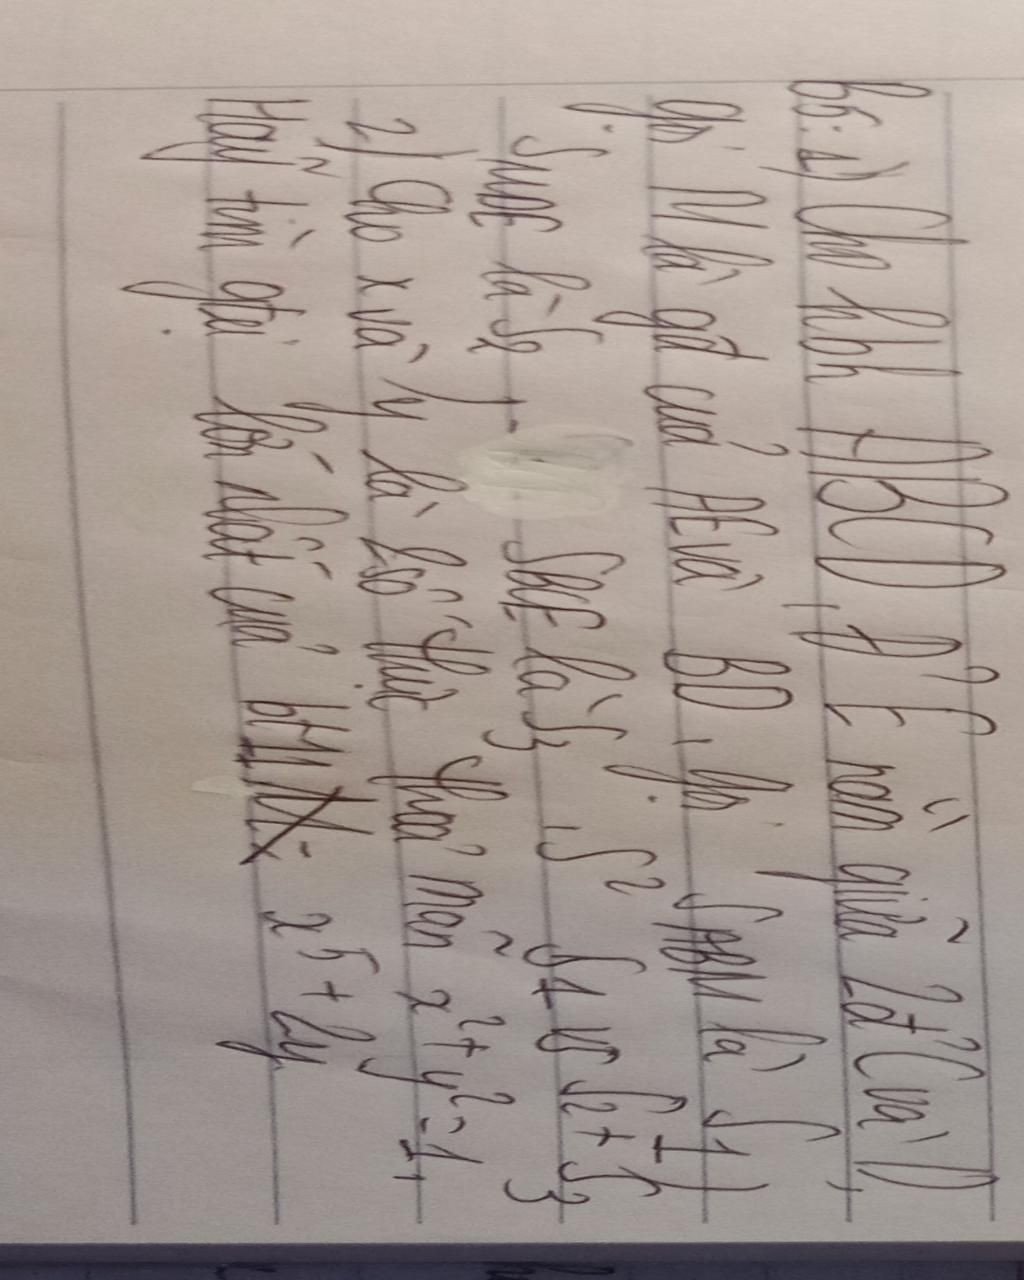 B5: 1) Cho hbh ABCD, đ² E nằm giữa 2đ² C và D,
gọi M là gđ của AE và BD, gọi SABM là S1,
SMDE là S2, SBCE là S3, S² S1 vs S2+S3
2) Cho x và y là 2 số thực thỏa mãn x²+y²=1,
Hãy tìm gtrị lớn nhất của bt M x⁵+2y